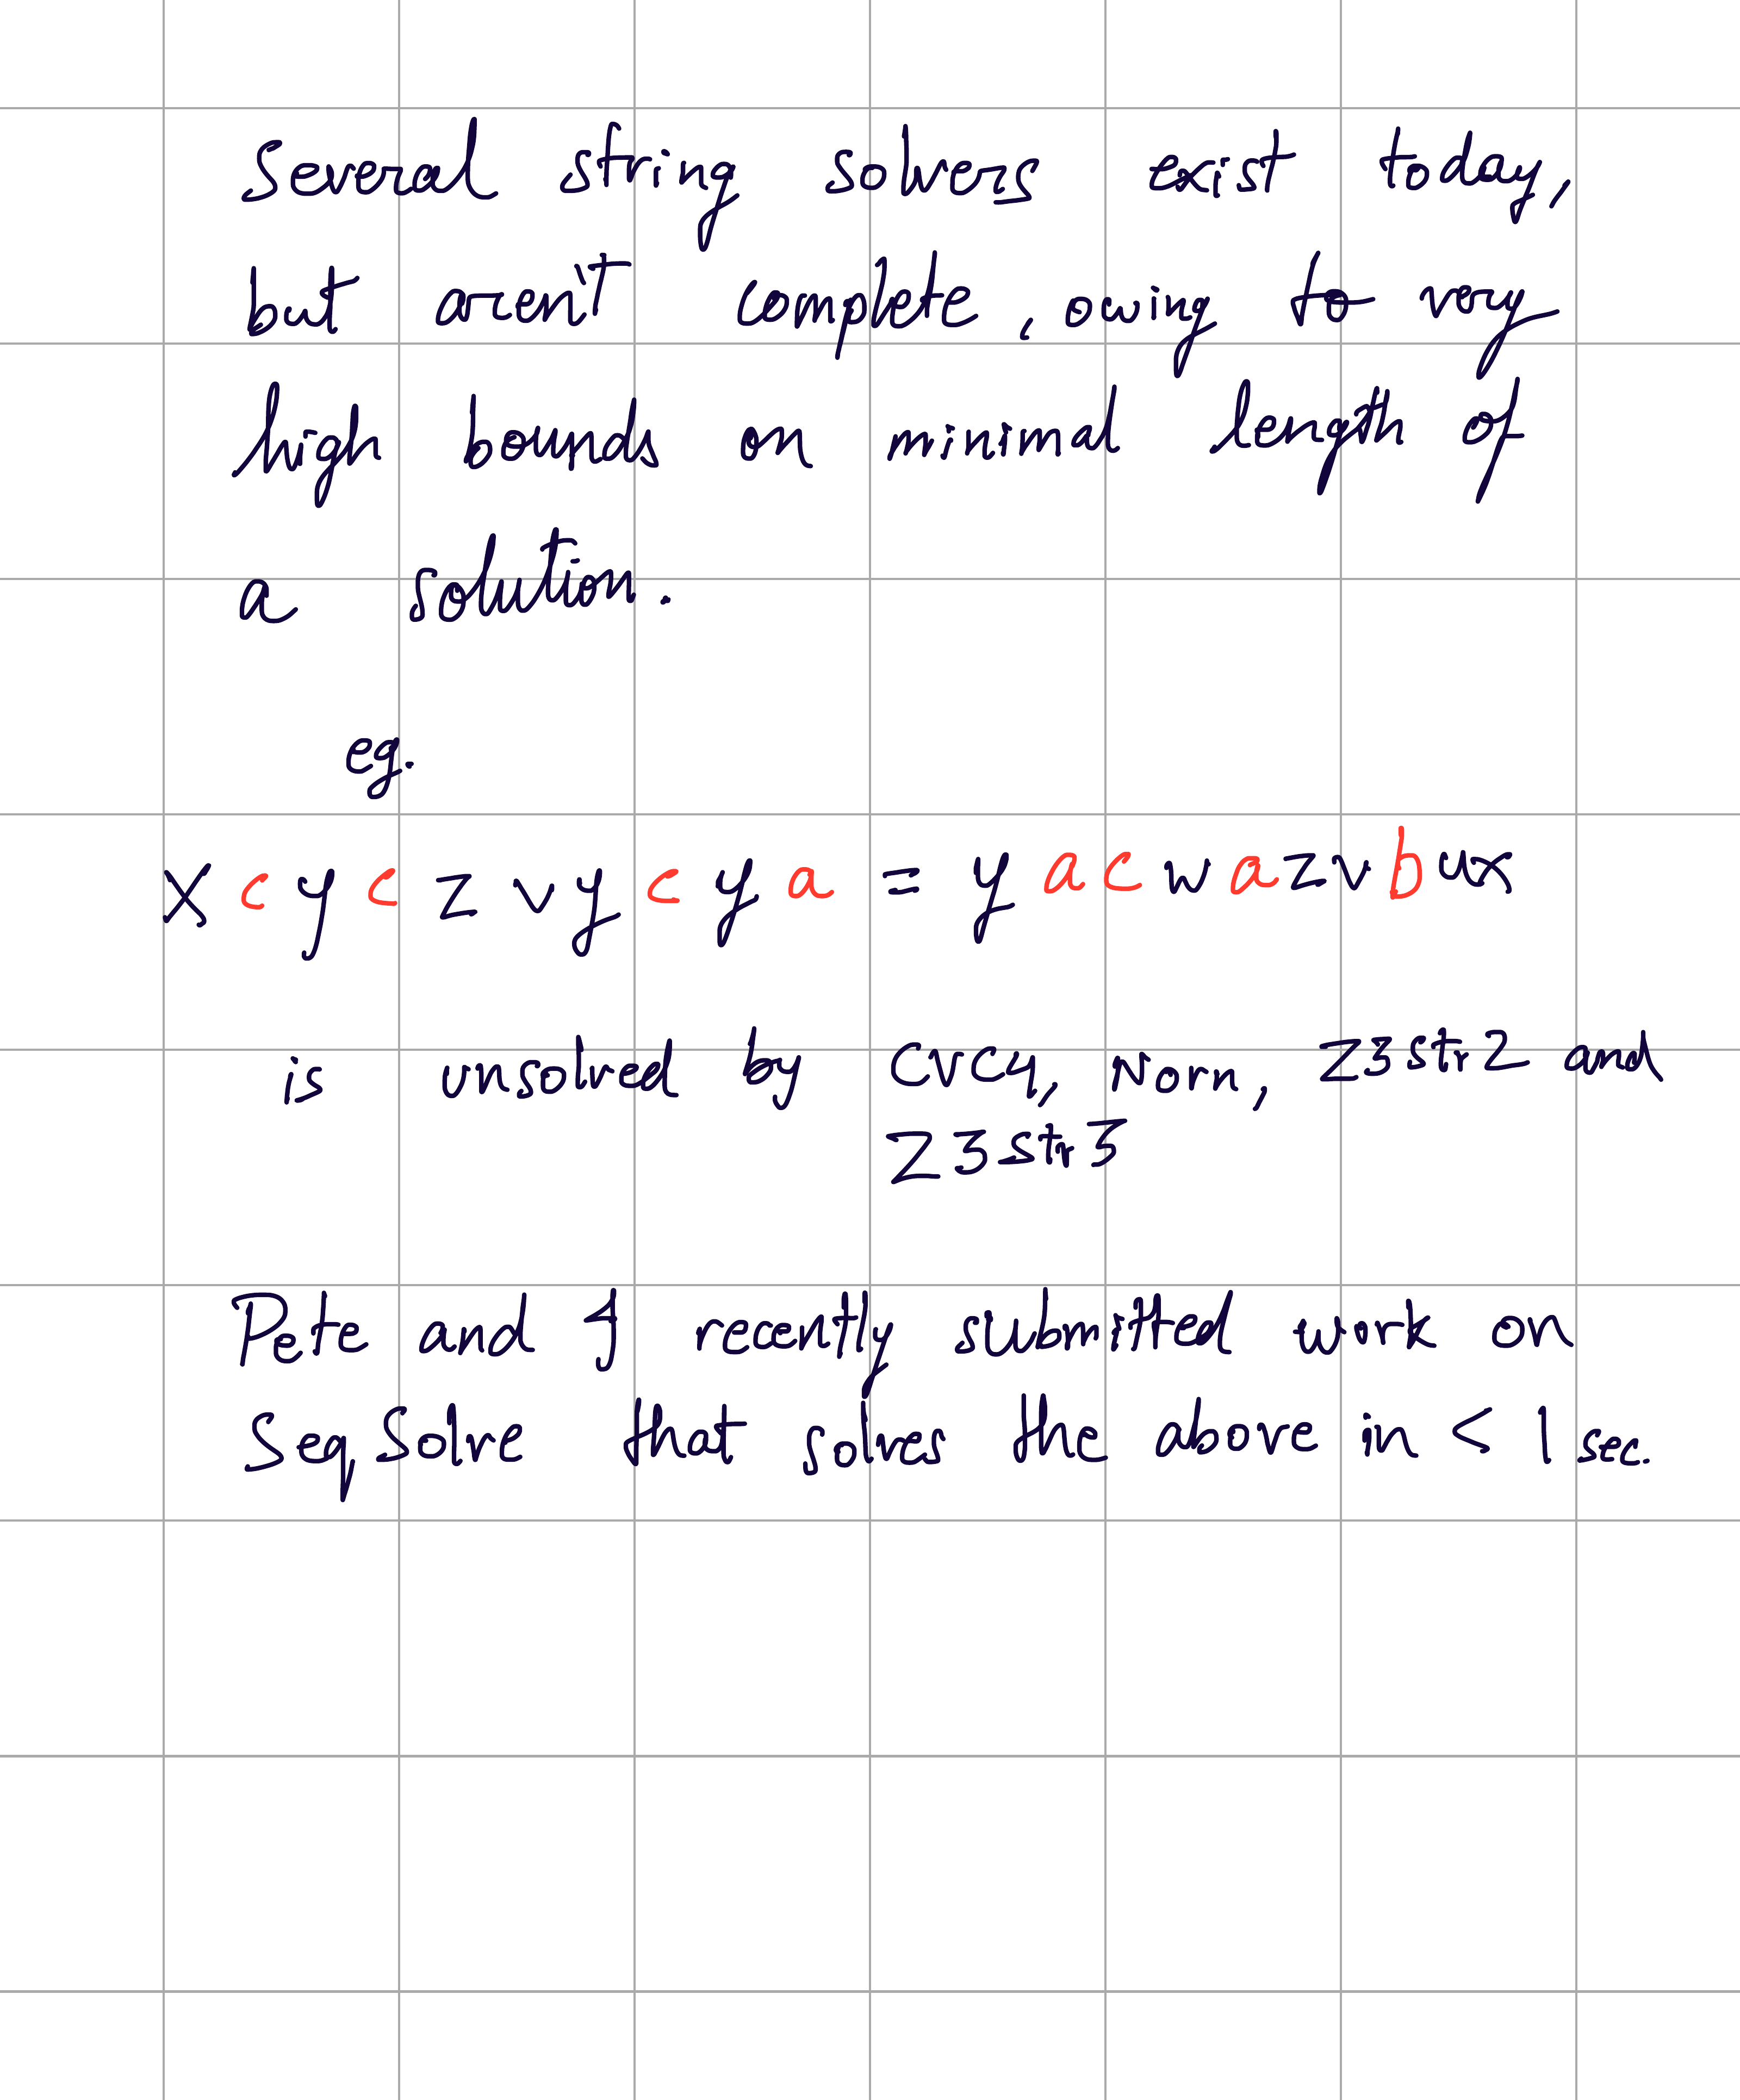 Several string solvers exist today,
but aren't complete, owing to very
high bounds on minimal length of
a solution.
eg.
x c y c z v y c y a = y a c w a z v b u x
is unsolved by CVC4, Norn, Z3str2 and
Z3str3
Pete and I recently submitted work on
SeqSolve that solves the above in < 1 sec.